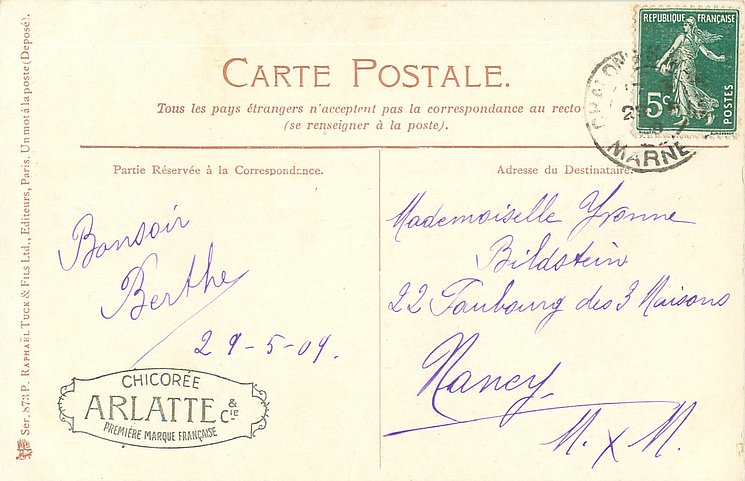 CARTE POSTALE.
Tous les pays étrangers n'acceptent pas la correspondance au recto
(se renseigner à la poste).
RÉPUBLIQUE FRANÇAISE
5c
POSTES
MARNE
Partie Réservée à la Correspondance.
Bonsoir
Berthe
29-5-09.
CHICORÉE
ARLATTE & Cie
PREMIÈRE MARQUE FRANÇAISE
Adresse du Destinataire.
Mademoiselle Yvonne
Bildstein
22 Faubourg des 3 Maisons
Nancy
M. x M.
Ser. 873 P. RAPHAËL TUCK & FILS Ltd., Editeurs, Paris, Un mot à la poste (Deposé).